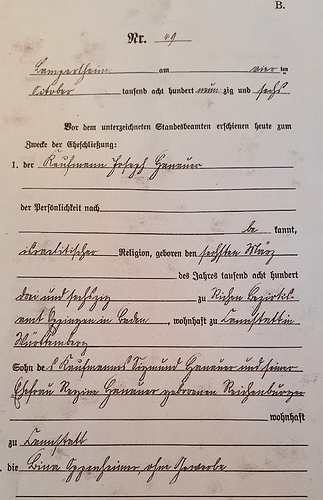 B.
Nr. 49
Lampertheim am vier ten
October tausend acht hundert neun zig und sechs
Vor dem unterzeichneten Standesbeamten erschienen heute zum
Zwecke der Eheschließung:
1. der Kaufmann Joseph Hanauer
der Persönlichkeit nach
be kannt,
israelitischer Religion, geboren den sechsten März
des Jahres tausend acht hundert
drei und sechszig zu Richen Bezirks-
amt Eppingen in Baden, wohnhaft zu Cannstatt in
Württemberg
Sohn des Kaufmanns Sigmund Hanauer und seiner
Ehefrau Regine Hanauer geborenen Reichenburger
wohnhaft
zu Cannstatt
die Bina Oppenheimer, ohne Gewerbe